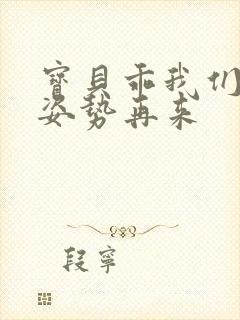 寶貝乖我们
姿勢再来
段寧